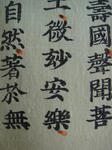 壽國聲聞菩
土微妙安樂
自然著於無